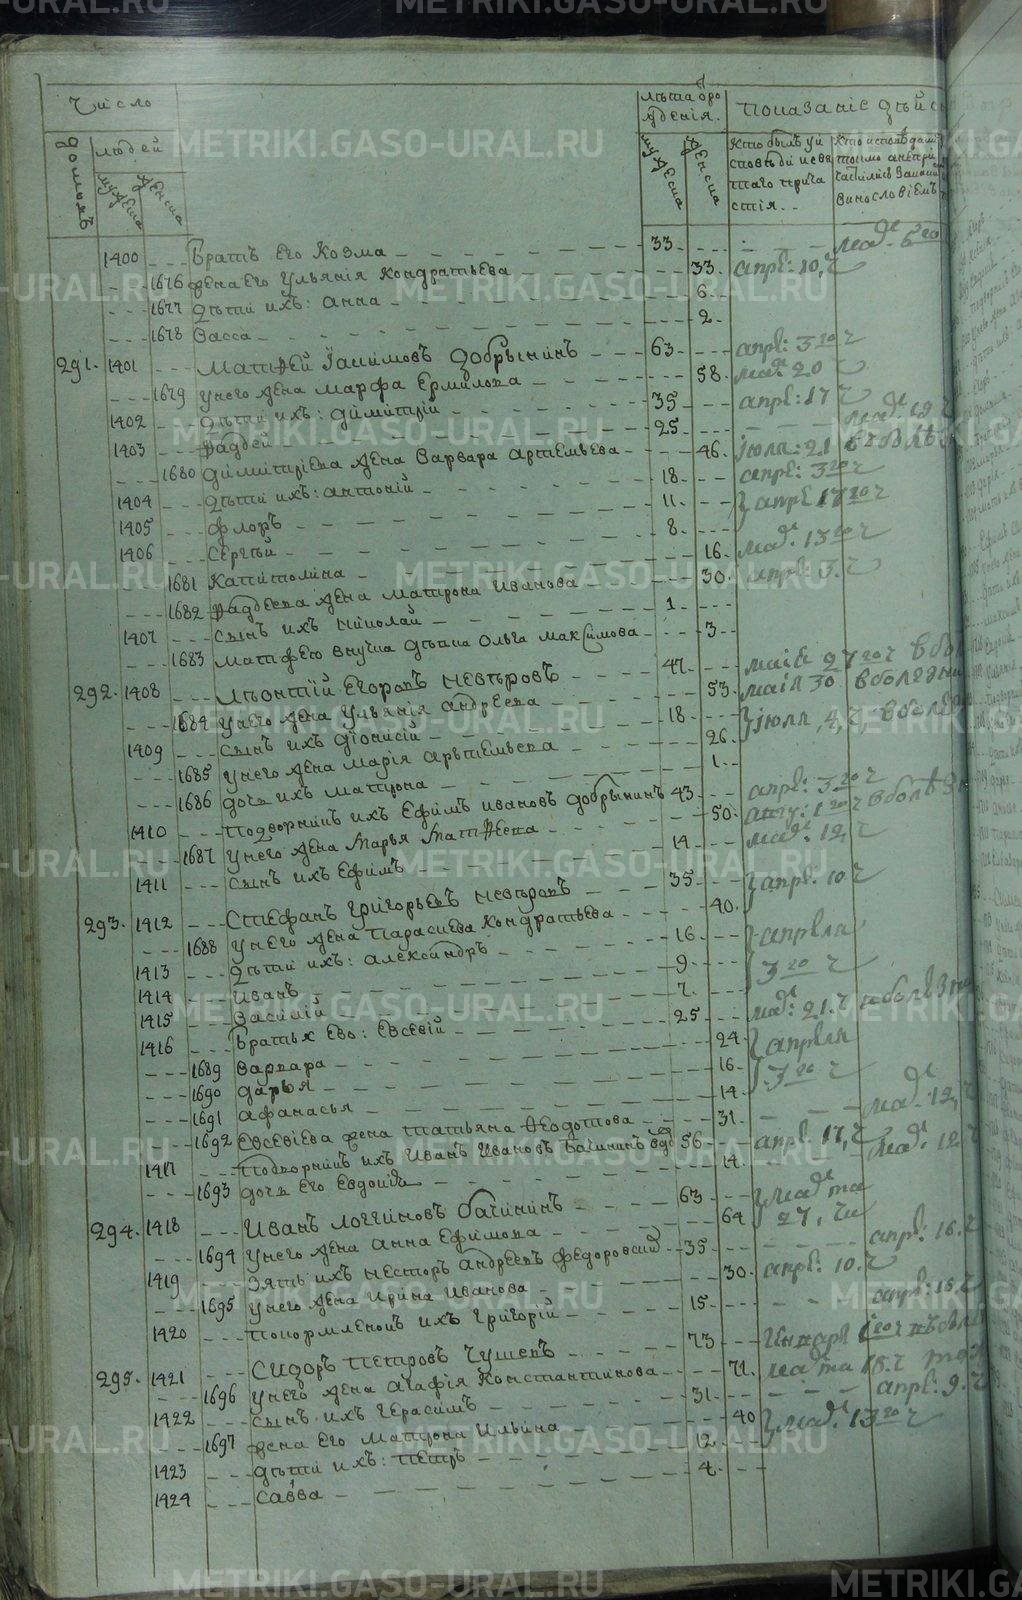 Число
домовъ
людей
мужеска
женска
лѣта от рождения.
мужеска
женска
Показаніе дѣйс
кто былъ у исповѣди и святаго причастія.
кто исповѣдался токмо а не причастился
1400 Братъ его Козма 33 мар: 6го
1676 жена его Ульянія Кондратьева 33. апрѣ: 10, ч
1677 Дѣти ихъ: Анна 6
1678 Васса 2
291. 1401 Матѳей Іакимовъ Добрынинъ 63 апрѣ: 3го ч
1679 У него жена Марфа Ермилова 58. мар: 20 ч
1402 Дѣти ихъ: Димитрій 35 апрѣ: 17 ч
1403 Фаддей 25
1680 Димитріева жена Варвара Артемьева 46. іюля: 21
1404 Дѣти ихъ: Антоній 18 апрѣ: 3го ч
1405 Флоръ 11 апрѣ 17го ч
1406 Сергѣй 8
1681 Капитолина 16 мар. 13го ч
1682 Фаддеева жена Матрона Иванова 30. апрѣ: 3. ч
1407 сынъ ихъ Николай 1
1683 Матфею внучка дѣвка Ольга Максимова 3
292. 1408 Леонтій Егоровъ Невѣровъ 47 маія 27го ч
1684 У него жена Ульянія Андреева 53. маія 30 в болезни
1409 сынъ ихъ Діонисій 18 іюля 4, ч в болез
1685 У него жена Марія Артемьева 26
1686 дочь ихъ Матрона 1
1410 Подворникъ ихъ Ефимъ Ивановъ Добрынинъ 43 апрѣ: 3го ч
1687 У него жена Марья Матѳеева 50.
1411 сынъ ихъ Ефимъ 14 мар: 12, ч
293. 1412 Стефанъ Григорьевъ Невѣровъ 35 апрѣ. 10 ч
1688 У него жена Параскева Кондратьева 40.
1413 Дѣти ихъ: Александръ 16 апрѣля
1414 Иванъ 9 3го ч
1415 Василій 7
1416 Братья ево: Евсевій 25 мар: 21. ч
1689 Варвара 24 апрѣля
1690 Дарья 16 3го ч
1691 Афанасья 14
1692 Евсевіева жена Татьяна Ѳеодотова 31 мар. 12, ч
1417 Подворникъ ихъ Иванъ Ивановъ 56 апрѣ: 17, ч мар: 12, ч
1693 дочь его Евдокія 14
294. 1418 Иванъ Логгиновъ Бачининъ 63 марта
1694 У него жена Анна Ефимова 64 27, ч
1419 Зять ихъ Несторъ Андреевъ Федоровскій 35 апрѣ: 16. ч
1695 У него жена Ирина Иванова 30. апрѣ: 10. ч
1420 Покормленокъ ихъ Григорій 15 апрѣ: 15. ч
295. 1421 Сидоръ Петровъ Чушевъ 73 Генваря
1696 У него жена Агафія Константинова 71. марта 15. ч
1422 сынъ ихъ Герасимъ 31 апрѣ: 9. ч
1697 жена его Матрона Ильина 40 мар: 13го ч
1423 Дѣти ихъ: Петръ 12
1424 Савва 4
METRIKI.GASO-URAL.RU